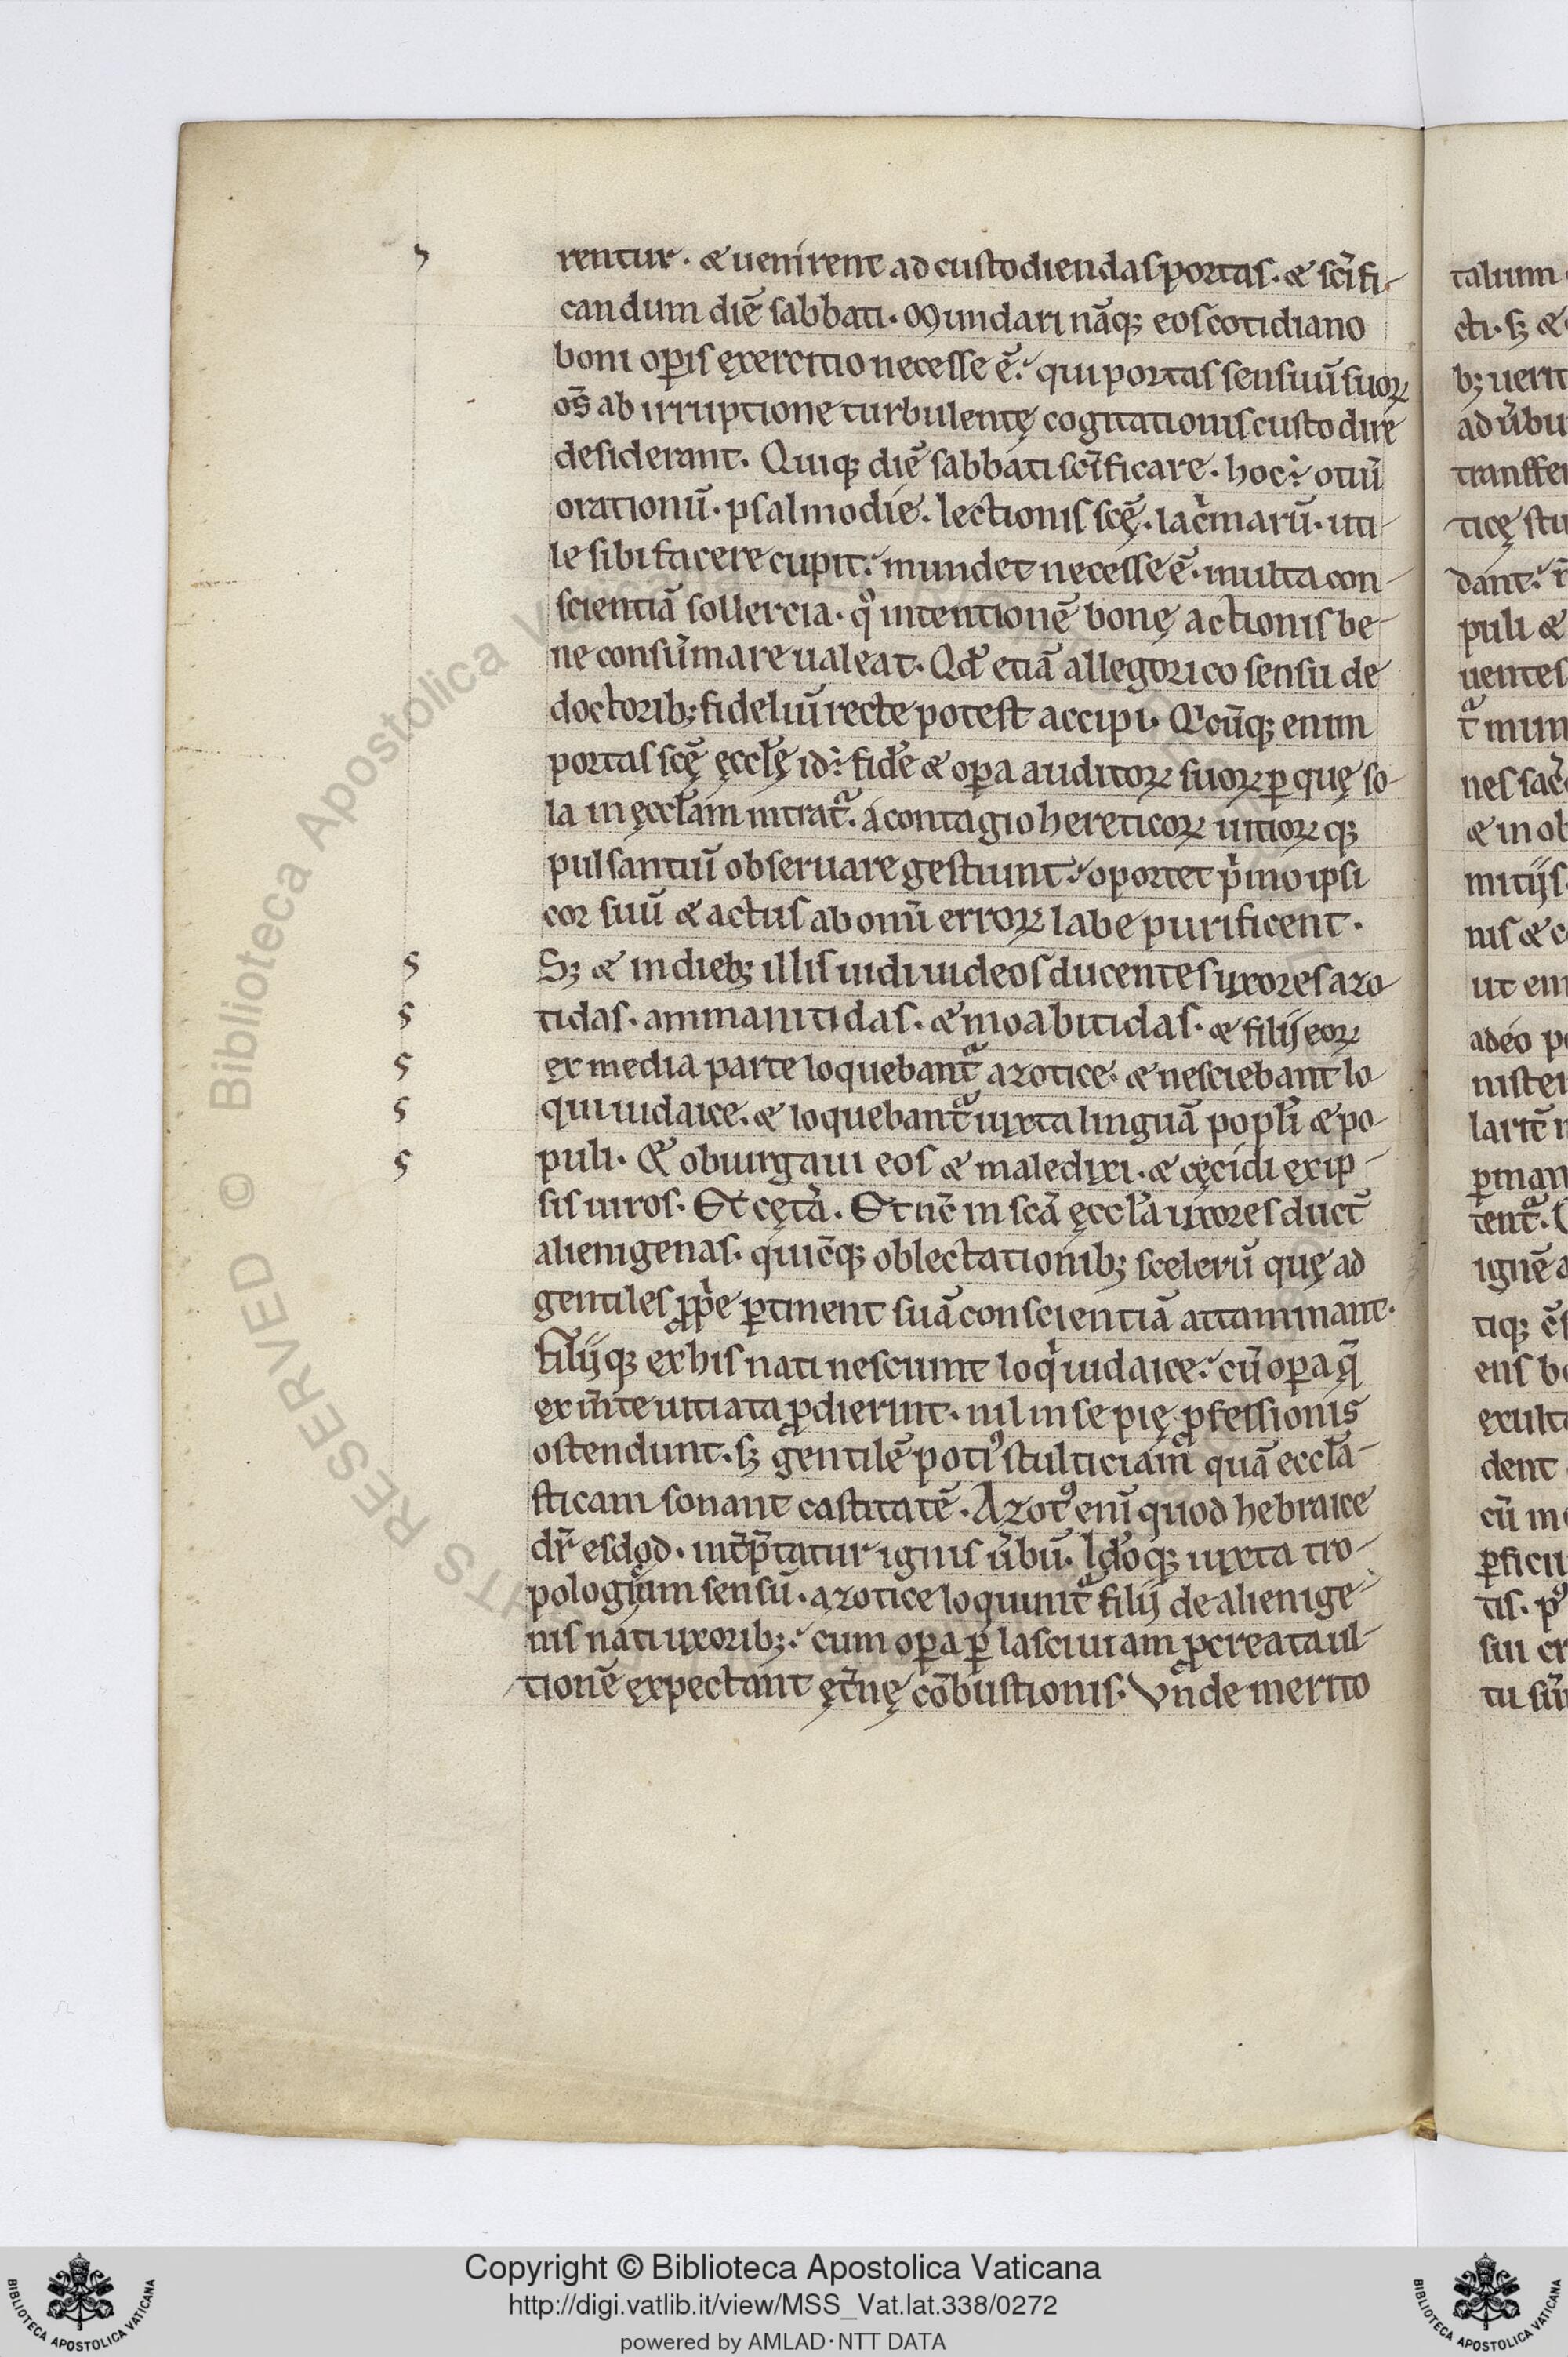 rentur. & uenirent ad custodiendas portas. & sc̄ifi-
candum diē sabbati. Mundari nāq; eos cotidiano
boni op̄is ęxercitio necesse ē. qui portas sensuū suoꝝ
om̄s ab irruptione turbulentę cogitationis custodire
desiderant. Quiq; diē sabbati sc̄ificare. hoc ÷ otiū
orationū. psalmodie. lectionis scę̄. lac̍maru̅. uti-
le sibi facere cupit. mundet necesse ē. multa con-
scientiā sollercia. qͦ intentionē bonę actionis be-
ne consūmare ualeat. Qđ etiā allegorico sensu de
doctorib; fideliū recte potest accipi. Qͥcūq; enim
portas scę̄ ęcclę̄ id ÷ fidē & oꝑa auditoꝝ suoꝝ ꝑ quę so-
la in ęccłam intratᷓ. a contagio hereticoꝝ uitioꝝq;
pulsantiū obseruare gestiunt. oportet pͥmo ipsi
cor suū & actus ab omī erroꝝ labe purificent.
S; & in dieb; illis uidi iudeos ducentes uxores azo-
tidas. ammanitidas. & moabitidas. & filij eoꝝ
ex media parte loquebantᷓ azotice. & nesciebant lo-
qui iudaice. & loquebantᷓ iuxta linguā popłi & po-
puli. & obiurgaui eos & maledixi. & cęcidi ex ip-
sis uiros. Et cęta̍. Et nc̄ in scā ęccła uxores duct̄
alienigenas. quicūq; oblectationib; scelerū quę ad
gentiles ꝓpͥe ꝑtinent suā conscientiā attaminant.
Filijq; ex his nati nesciunt loqͥ iudaice. cū oꝑa q̄
ex m̄te uitiata ꝓdierint. nil in se pię ꝓfessionis
ostendunt. s; gentilē potiꝰ stulticiam quā eccła-
sticam sonant castitatē. Azotꝰ eni̅ quod hebraice
dr̄ esdod. int̄p̄tatur ignis ūbū. Idō q; iuxta tro-
pologicum sensū. azotice loquuntᷓ filij de alienige-
nis nati uxorib;. cum oꝑa ꝑ lasciuiam ꝓcreata ul-
tionē ęxpectant ęt̄nę cōbustionis. Vnde merito
talium
cti. s; &
b; uerit
ad ūbu
transfer
ticę stu
dant.
puli &
uentes
tᷓ mun
nes sac̍
& in ob
mitijs
nis & c
ut eni
adeo p
nister
larit̄
ꝑman
tentᷓ.
ignē a
tiq; ēs
ens b
exult
dent
cū m
ꝑficiu
tis. pꝰ
sui cr
tu
Copyright © Biblioteca Apostolica Vaticana
http://digi.vatlib.it/view/MSS_Vat.lat.338/0272
powered by AMLAD·NTT DATA
BIBLIOTECA APOSTOLICA VATICANA
BIBLIOTECA APOSTOLICA VATICANA